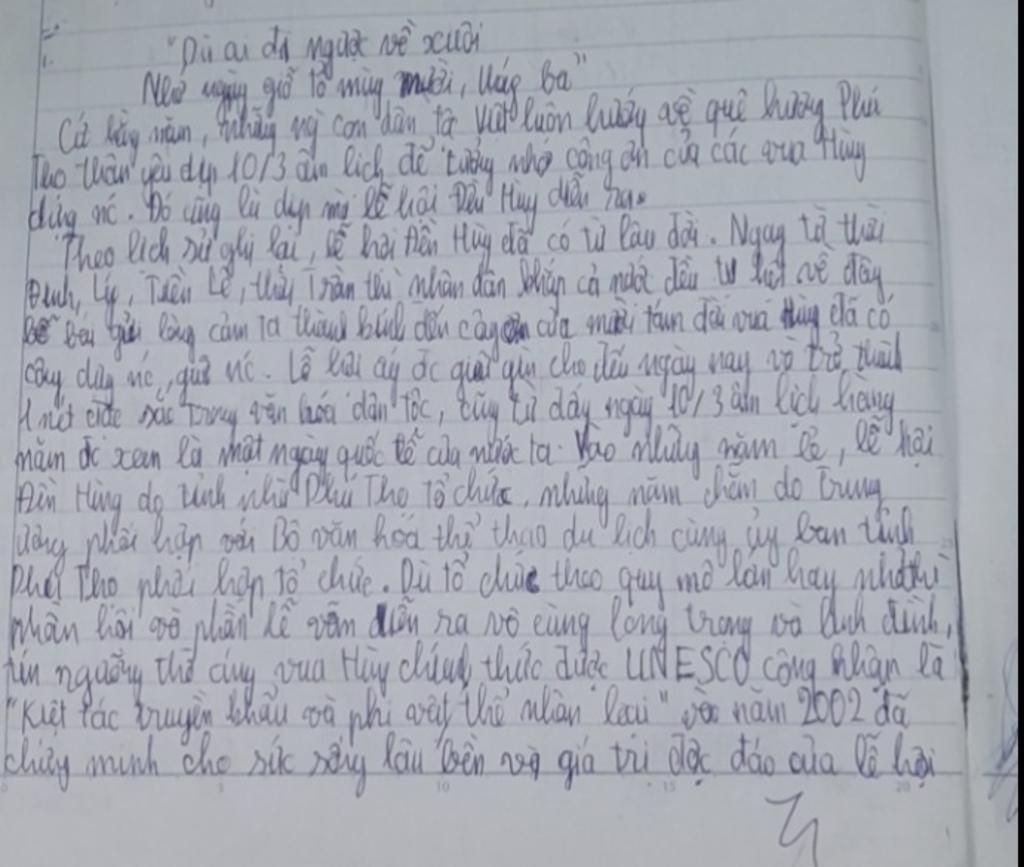 "Dù ai đi ngược về xuôi
Nhớ ngày giỗ tổ mùng mười, tháng ba"
Cứ hằng năm, những ng con dân ta Việt luôn hướng về quê hương Phú
Thọ thân yêu dịp 10/3 âm lịch để tưởng nhớ công ơn của các vua Hùng
dựng nc. Đó cũng là dịp mà lễ hội Đền Hùng diễn ra.
Theo lịch sử ghi lại, lễ hội đền Hùng đã có từ lâu đời. Ngay từ thời
Đinh, Lý, Tiền Lê, thời Trần thì nhân dân khắp cả nước đều tụ hội về đây
để bày gửi lòng cảm tạ thành kính đến công của mười tám đời vua Hùng đã có
công dựng nc, giữ nc. Lễ hội ấy đc giữ gìn cho đến ngày nay và trở thành
1 nét đặc sắc trong văn hóa dân tộc, cũng từ đấy ngày 10/3 âm lịch hàng
năm đc xem là một ngày quốc lễ của nước ta. Vào những năm lẻ, lễ hội
đền Hùng do tỉnh Phú Thọ tổ chức, những năm chẵn do trung
ương phối hợp với Bộ văn hóa thể thao du lịch cùng ủy ban tỉnh
Phú Thọ phối hợp tổ chức. Dù tổ chức theo quy mô lớn hay nhỏ thì
phần hội và phần lễ vẫn diễn ra vô cùng long trọng và linh đình,
tín ngưỡng thờ cúng vua Hùng chính thức được UNESCO công nhận là
"Kiệt tác truyền khẩu và phi vật thể nhân loại" vào năm 2002 đã
chứng minh cho sức sống lâu bền và giá trị độc đáo của lễ hội